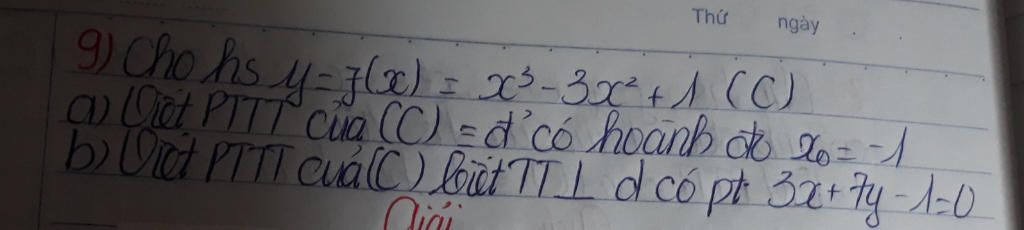 Thứ ngày
9) Cho hs y = f(x) = x³ - 3x² + 1 (C)
a) Viết PTTT của (C) = đ' có hoành độ x₀ = -1
b) Viết PTTT của (C) biết TT ⊥ d có pt 3x + 7y - 1 = 0
Giải